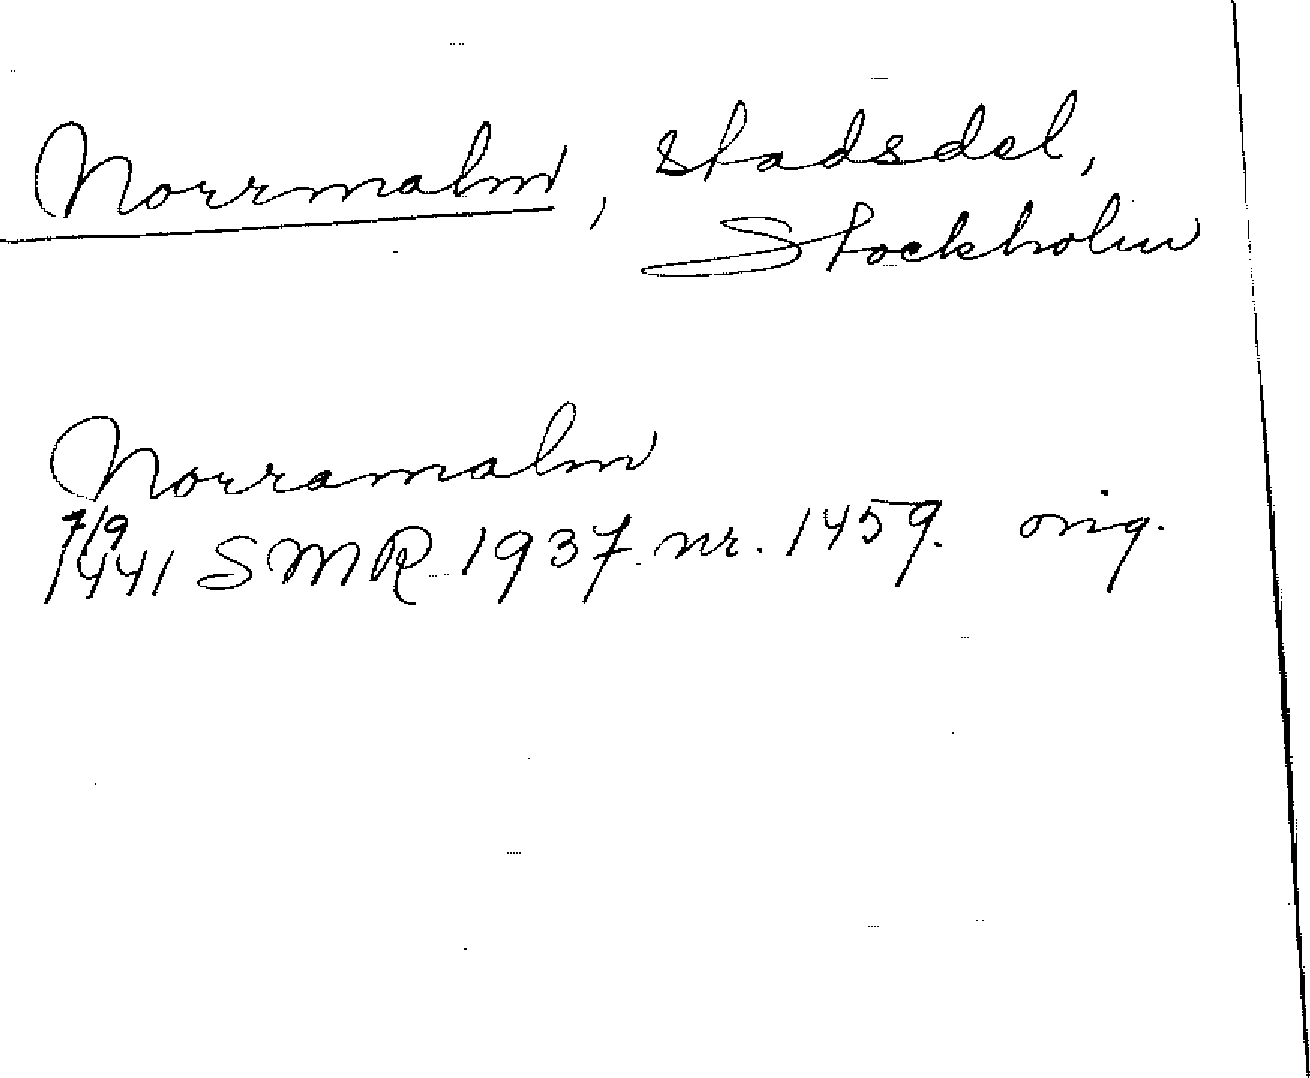 Norrmalm, stadsdel,
Stockholm
Norramalm
7/9
1441 SMR 1937 nr. 1459. orig.